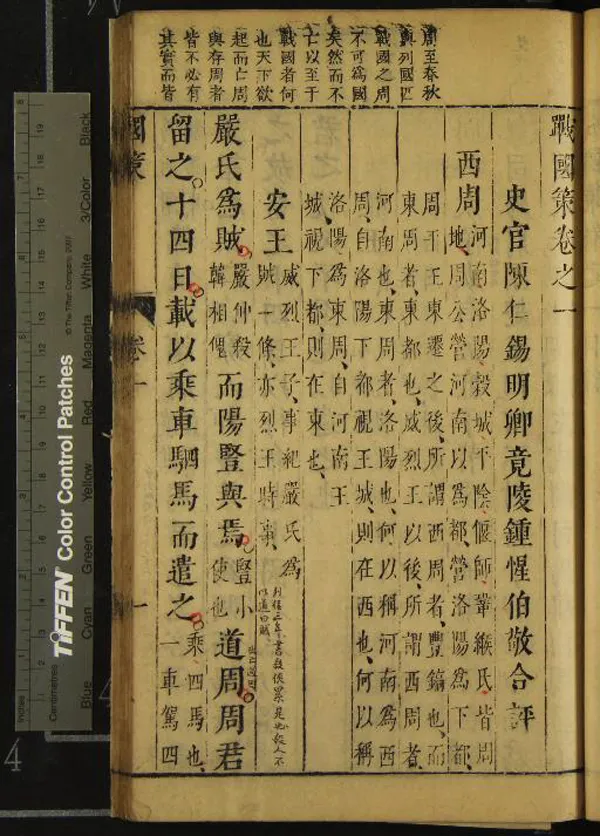 周至春秋
與列國匹
戰國之周
不可為國
矣然而不
亡以至于
戰國者何
也天下欲
起而亡周
與存周者
皆不必有
其實而皆
戰國策卷之一
史官陳仁錫明卿竟陵鍾惺伯敬合評
西周 河南洛陽、穀城、平陰、偃師、鞏、緱氏、皆周
地、周公營河南以爲都、營洛陽爲下都、
周平王東遷之後、所謂西周者、豐鎬也、而
東周者、東都也、威烈王以後、所謂西周者、
河南也、東周者、洛陽也、何以稱河南爲西
周、自洛陽下都視王城、則在西也、何以稱
洛陽爲東周、自河南王
城視下都、則在東也、
安王 威烈王子、事紀嚴氏爲
賊一條、亦烈王時事、
嚴氏爲賊 嚴仲殺韓相傀 而陽豎與焉 豎小使也 道周周君
留之十四日載以乘車駟馬而遣之 乘、四馬也、一車駕四
國策
卷一
一
TIFFEN Color Control Patches
© The Tiffen Company, 2007
Blue Cyan Green Yellow Red Magenta White 3/Color Black
Inches
Centimetres
4